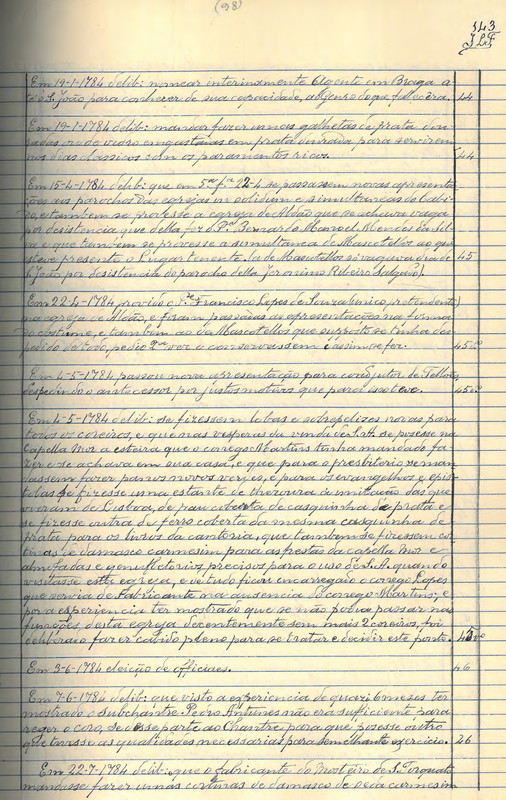 (98)
143
J L F
Em 19-1-1784 delib: nomear interinamente Agente em Braga a
S. João para conhecer de sua capacidade, a Jeuro do que fallecera. 44
Em 19-1-1784 delib: mandar fazer umas galhetas de prata dou-
radas ou de vidro engastadas em prata dourada para servirem
nos dias classicos com os paramentos ricos. 44
Em 15-4-1784 delib: que em 5ª fª 22-4 se passassem novas apresenta-
ções aos parochos das egrejas in solidum e simultaneas do Cabi-
do, e tambem se provesse a egreja de Aldão que se achava vaga
por desistencia que della fez o Pe Bernardo Manoel Mendes da Sil-
va e que tambem se provesse a simultanea de Mascotellos ao que
esteve presente o Lugartenente. (a de Mascotellos si vagava dia de
S. João por desistencia do parocho della Jeronimo Ribeiro Salgado). 45
Em 22-4-1784, provido o Pe Francisco Lopes de Souza, unico pretendente
na egreja de Aldão, e foram passadas as apresentações na forma
do costume, e tambem ao de Mascotellos que supposto se tinha des-
pedido de todo, pedio 2ª vez o conservassem e assim se fez. 45vº
Em 4-5-1784 passou nova apresentação para coadjutor de Telhos,
despedindo o antecessor por justos motivos que para isso teve. 45vº
Em 4-5-1784 delib: se fizessem lobas e sobrepelizes novas para
todos os coreiros, e que nas vesperas da vinda de S. A. se posesse na
Capella Mor a esteira que o conego Martins tinha mandado fa-
zer e se achava em sua casa, e que para o presbiterio se man-
dassem fazer pannos novos verdes, e para os evangelhos e epis-
tolas se fizesse uma estante de
vieram de Lisboa, de pau coberta de casquinha de prata e
se fizesse outra de ferro coberta da mesma casquinha de
prata para os livros da cantoria, que tambem se fizessem cor-
tinas de damasco carmesim para as frestas da capella Mor e
almofadas e genuflectorios precisos para o uso de S. A. quando
visitasse esta egreja, e de tudo ficou encarregado o conego Lopes
que servia de Fabricante na ausencia do conego Martins; e
por a esperiencia ter mostrado que se não podia passar nas
funcções desta egreja decentemente sem mais 2 coreiros, foi
deliberado fazer cabido pleno para se tratar e decidir este ponto. 45vº
Em 3-6-1784 eleição de officiaes. 46
Em 7-6-1784 delib: que visto a experiencia de quazi 6 mezes ter
mostrado o Subchantre Pedro Antunes não era sufficiente para
reger o coro, se désse parte ao Chantre para que posesse outro
que tivesse as qualidades necessarias para semelhante exercicio. 26
Em 22-7-1784 delib: que o fabricante do Mosteiro de S. Torquato
mandasse fazer umas cortinas de damasco de seda carmesim